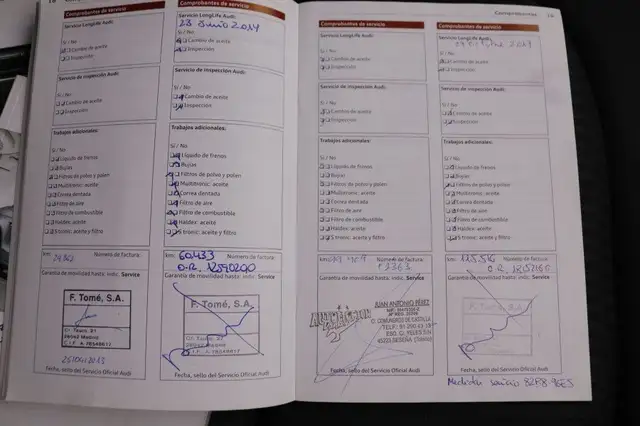 Comprobantes de servicio
Servicio LongLife Audi:
Sí / No
Cambio de aceite
Inspección
Servicio de inspección Audi:
Sí / No
Cambio de aceite
Inspección
Trabajos adicionales:
Sí / No
Líquido de frenos
Bujías
Filtros de polvo y polen
Multitronic: aceite
Correa dentada
Filtro de aire
Filtro de combustible
Haldex: aceite
S tronic: aceite y filtro
km:
Número de factura:
Garantía de movilidad hasta: indic. Service
F. Tomé, S.A.
28042 Madrid
25/04/2013
Fecha, sello del Servicio Oficial Audi
Comprobantes de servicio
Servicio LongLife Audi:
23 Junio 2014
Sí / No
Cambio de aceite
Inspección
Servicio de inspección Audi:
Sí / No
Cambio de aceite
Inspección
Trabajos adicionales:
Sí / No
Líquido de frenos
Bujías
Filtros de polvo y polen
Multitronic: aceite
Correa dentada
Filtro de aire
Filtro de combustible
Haldex: aceite
S tronic: aceite y filtro
km: 60.433 Número de factura:
Garantía de movilidad hasta: indic. Service
F. Tomé, S.A.
Fecha, sello del Servicio Oficial Audi
Comprobantes
Comprobantes de servicio
Servicio LongLife Audi:
Sí / No
Cambio de aceite
Inspección
Servicio de inspección Audi:
Sí / No
Cambio de aceite
Inspección
Trabajos adicionales:
Sí / No
Líquido de frenos
Bujías
Filtros de polvo y polen
Multitronic: aceite
Correa dentada
Filtro de aire
Filtro de combustible
Haldex: aceite
S tronic: aceite y filtro
km:
Número de factura:
Garantía de movilidad hasta: indic. Service
JUAN ANTONIO PÉREZ
Fecha, sello del Servicio Oficial Audi
Comprobantes de servicio
Servicio LongLife Audi:
Sí / No
Cambio de aceite
Inspección
Servicio de inspección Audi:
Sí / No
Cambio de aceite
Inspección
Trabajos adicionales:
Sí / No
Líquido de frenos
Bujías
Filtros de polvo y polen
Multitronic: aceite
Correa dentada
Filtro de aire
Filtro de combustible
Haldex: aceite
S tronic: aceite y filtro
km:
Número de factura:
Garantía de movilidad hasta: indic. Service
Fecha, sello del Servicio Oficial Audi